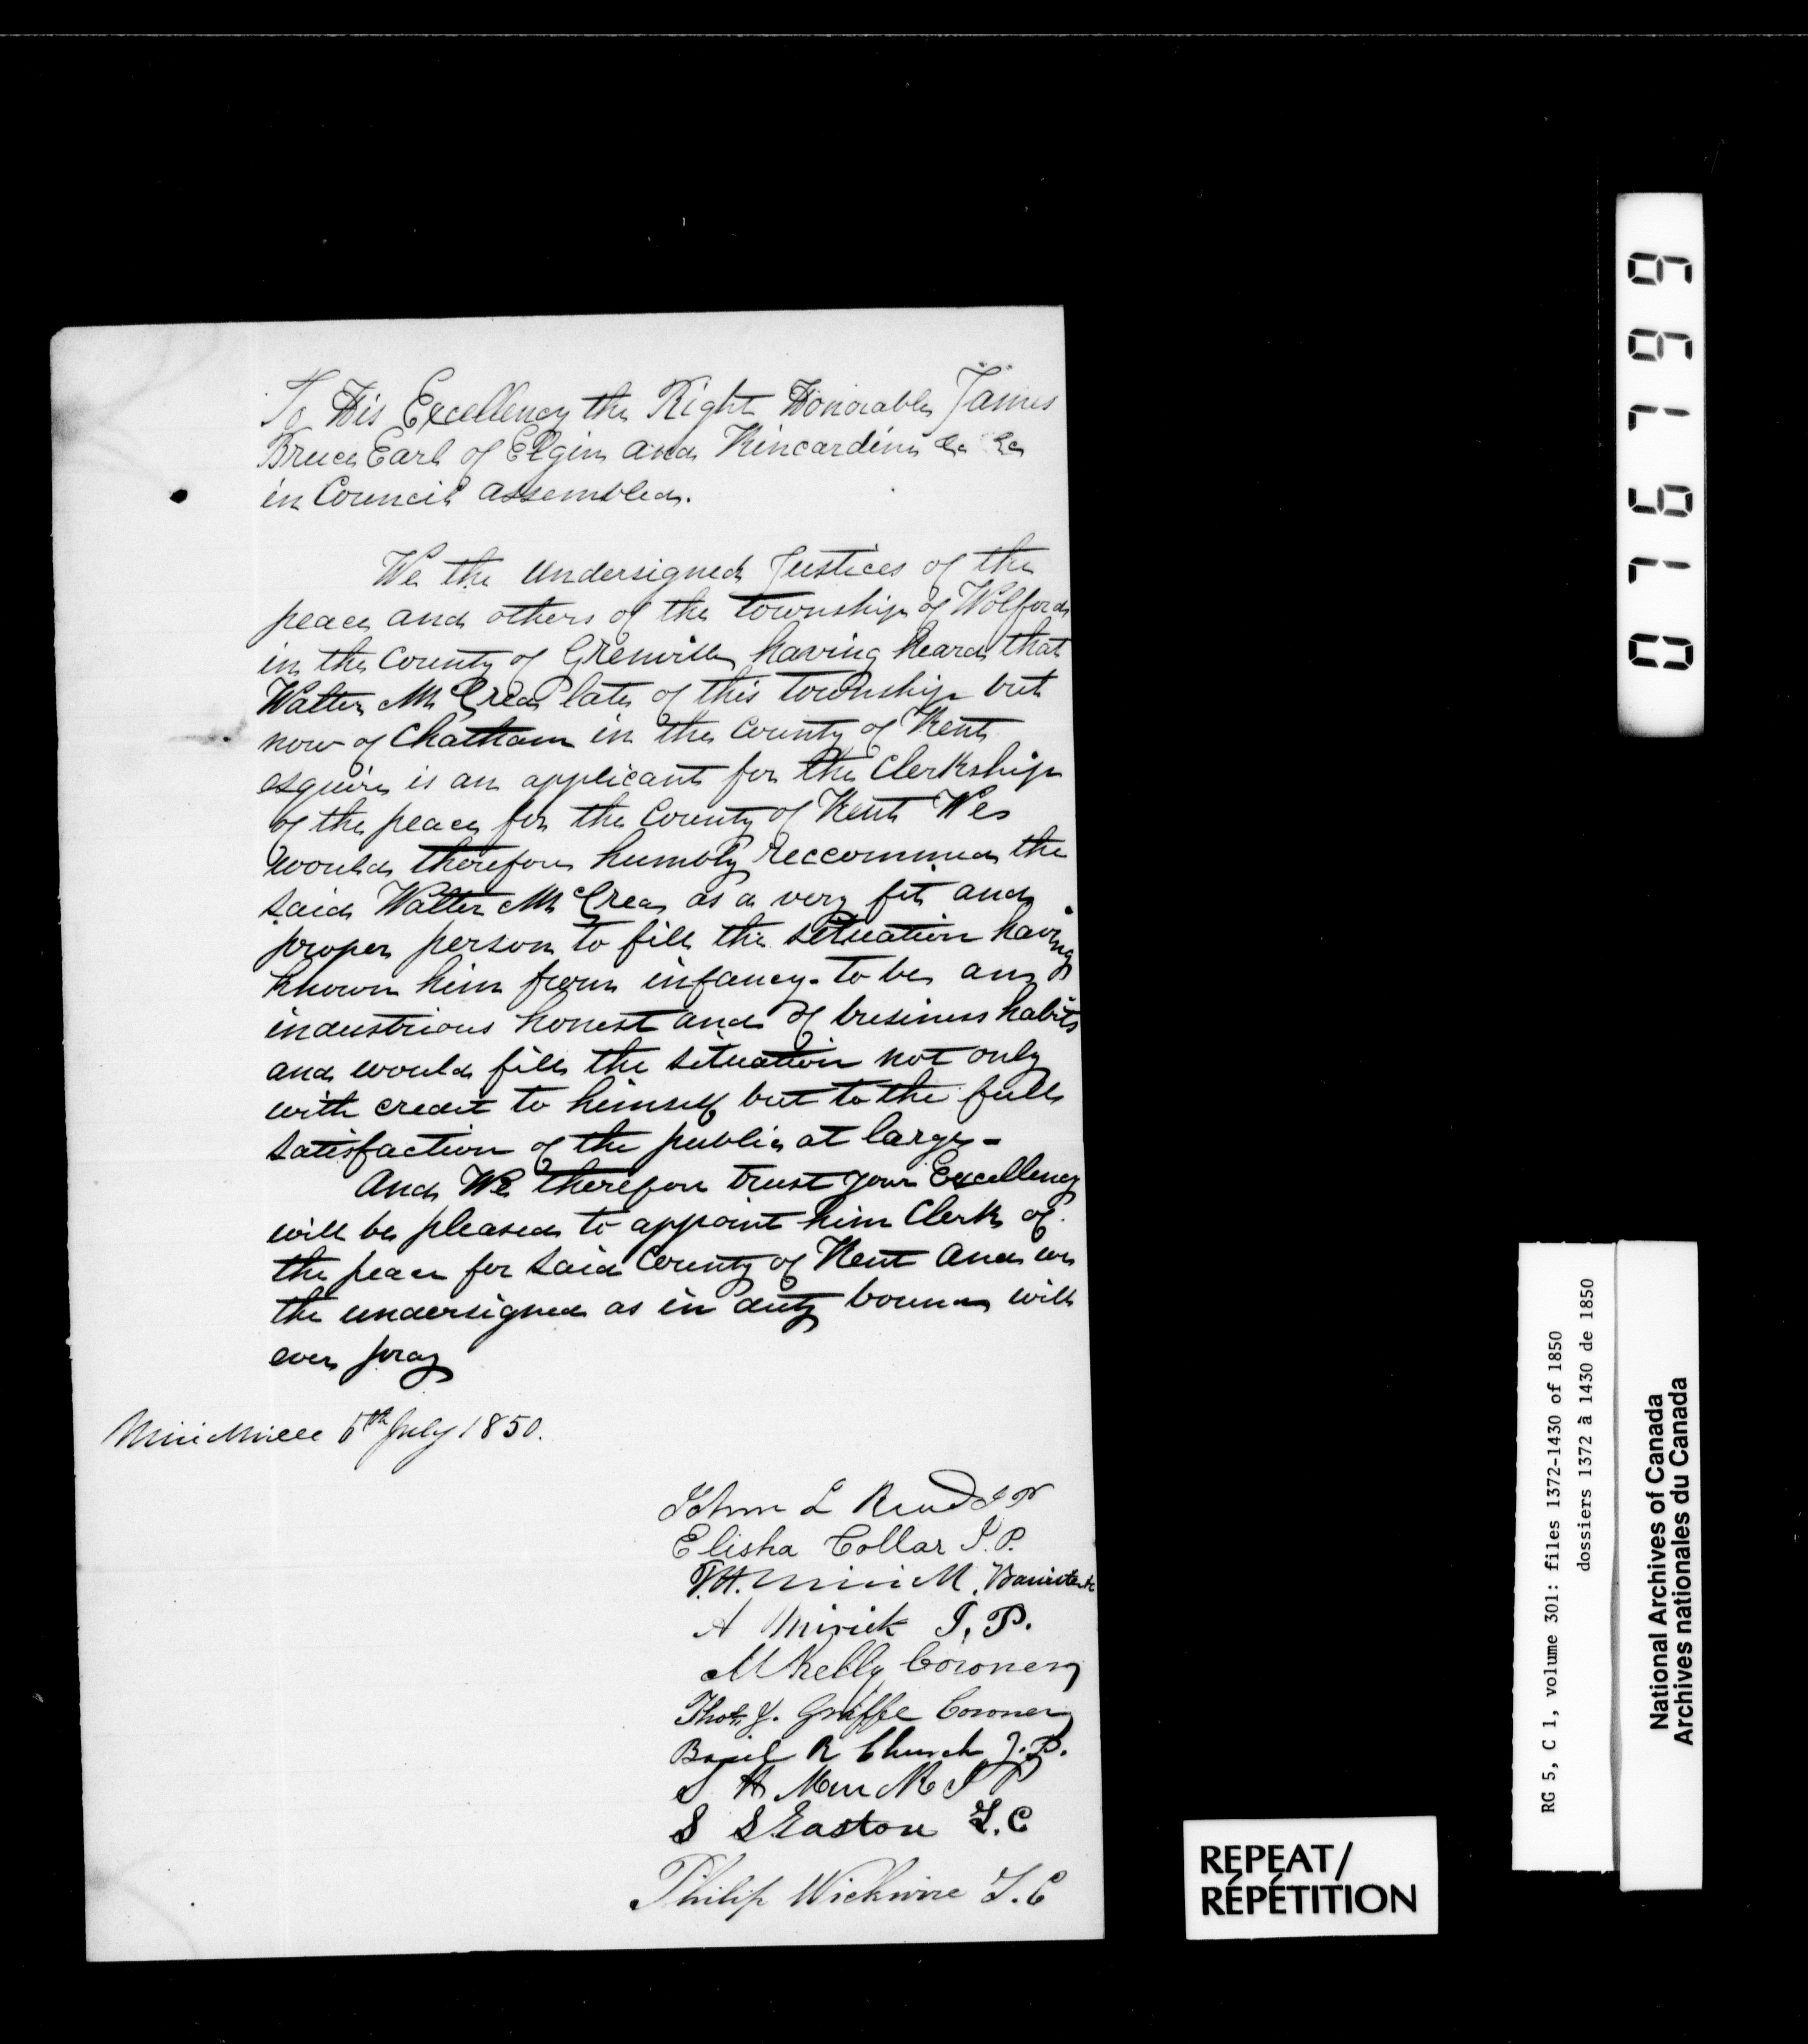 To His Excellency the Right Honorable James
Bruce Earl of Elgin and Kincardine &c &c
in Council assembled.
We the undersigned Justices of the
peace and others of the township of Wolford
in the County of Grenville having heard that
Walter McCrea late of this township but
now of Chatham in the County of Kent
esquire is an applicant for the Clerkship
of the peace for the County of Kent We
would therefore humbly reccommend the
said Walter McCrea as a very fit and
proper person to fill the situation having
known him from infancy. to be an
industrious honest and of business habits
and would fill the situation not only
with credit to himself but to the full
satisfaction of the public at large -
And We therefore trust your Excellency
will be pleased to appoint him Clerk of
the peace for said County of Kent and we
the undersigned as in duty bound will
ever pray
July 1850.
John L Read J P
Elisha Collar J.P.
A Mirick J.P.
M Kelly Coroner
Thos. Y. Graffe Coroner
Basil R Church J.P.
S H J P
S S Easton T.C
Philip Wickwire T.C
REPEAT/
RÉPÉTITION
RG 5, C 1, volume 301: files 1372-1430 of 1850
dossiers 1372 à 1430 de 1850
National Archives of Canada
Archives nationales du Canada